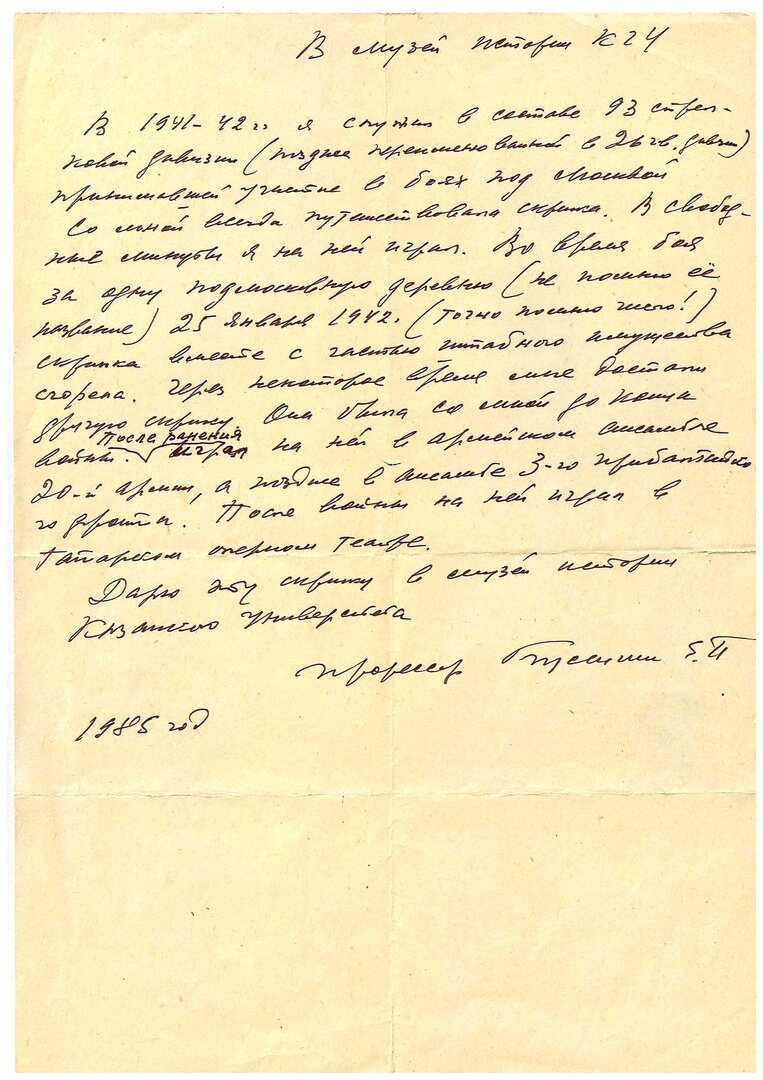 В музей истории КГУ
В 1941-42 гг я служил в составе 93 стрел-
ковой дивизии (позднее переименованной в 26 гв. дивизию)
принимавшей участие в боях под Москвой
Со мной всегда путешествовала скрипка. В свобод-
ные минуты я на ней играл. Во время боя
за одну подмосковную деревню (не помню её
название) 25 января 1942. (точно помню число!)
скрипка вместе с частью штабного имущества
сгорела. Через некоторое время мне достали
другую скрипку Она была со мной до конца
войны. После ранения играл на ней в армейском ансамбле
20-й армии, а позднее в ансамбле 3-го прибалтийско
го фронта. После войны на ней играл в
татарском оперном театре.
Дарю эту скрипку в музей истории
Казанского университета
профессор Бусыгин Е.П
1985 год